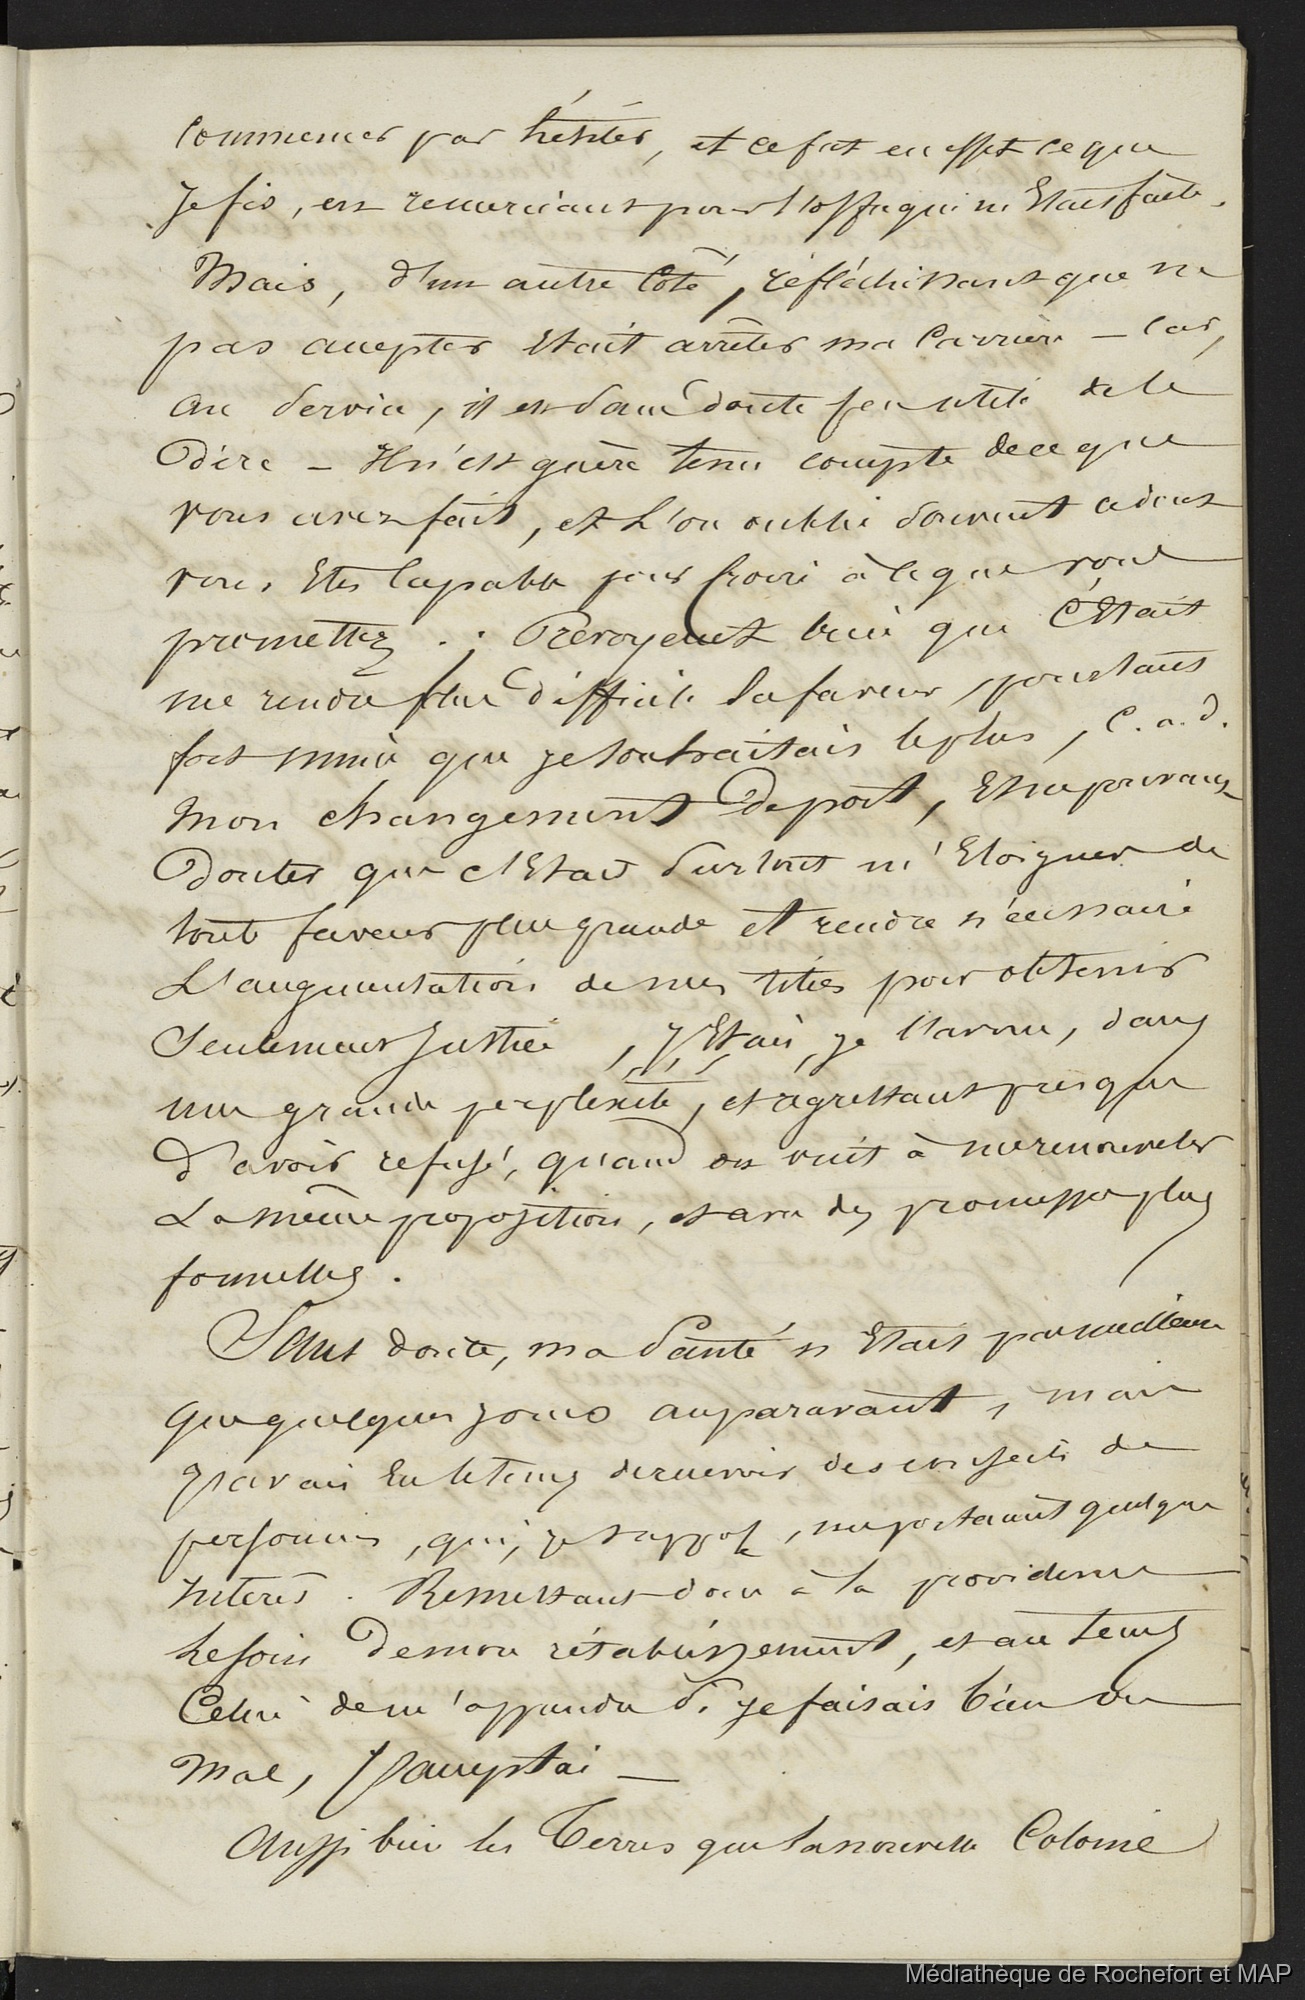 commencer par hésiter, et ce fut en effet ce que
je fis, en remerciant pour l'offre qui m'Etait faite.
Mais, d'un autre Côté, réfléchissant que ne
pas accepter Etait arrêter ma Carrière – car,
au service, il est sans doute peu utile de le
Dire – Il n'est guère tenu compte de ce que
vous avez fait, et l'on oublie souvent a dont
vous Etes Capable pour croire à ce que vous
promettez. ; Prevoyent bien que C'Etait
me rendre plus difficile la faveur, pourtant
fort minime que je souhaitais le plus, C. a. d.
mon changement De port, Et ne pouvant
Douter que c'Etait surtout m'Eloigner de
toute faveur plus grande et rendre nécessaire
L'augmentation de mes titres pour obtenir
Seulement Justice, J'Etais, je l'avoue, dans
une grande perplexité, et regrettant presque
d'avoir refusé, quand on vint à me renouveler
La même proposition, et avec des promesses plus
formelles.
Sans doute, ma Santé n'Etait pas meilleure
que quelques jours auparavant, mais
j'avais Eu le tems de recevoir des conseils de
personnes, qui, je suppose, me portaient quelque
Interêt. Remettant donc à la providence
le soin De mon rétablissement, et au tems
Celui de m'apprendre si je faisais bien ou
Mal, J'acceptai –
Aussi bien les Terres que la nouvelle Colonie
Médiathèque de Rochefort et MAP